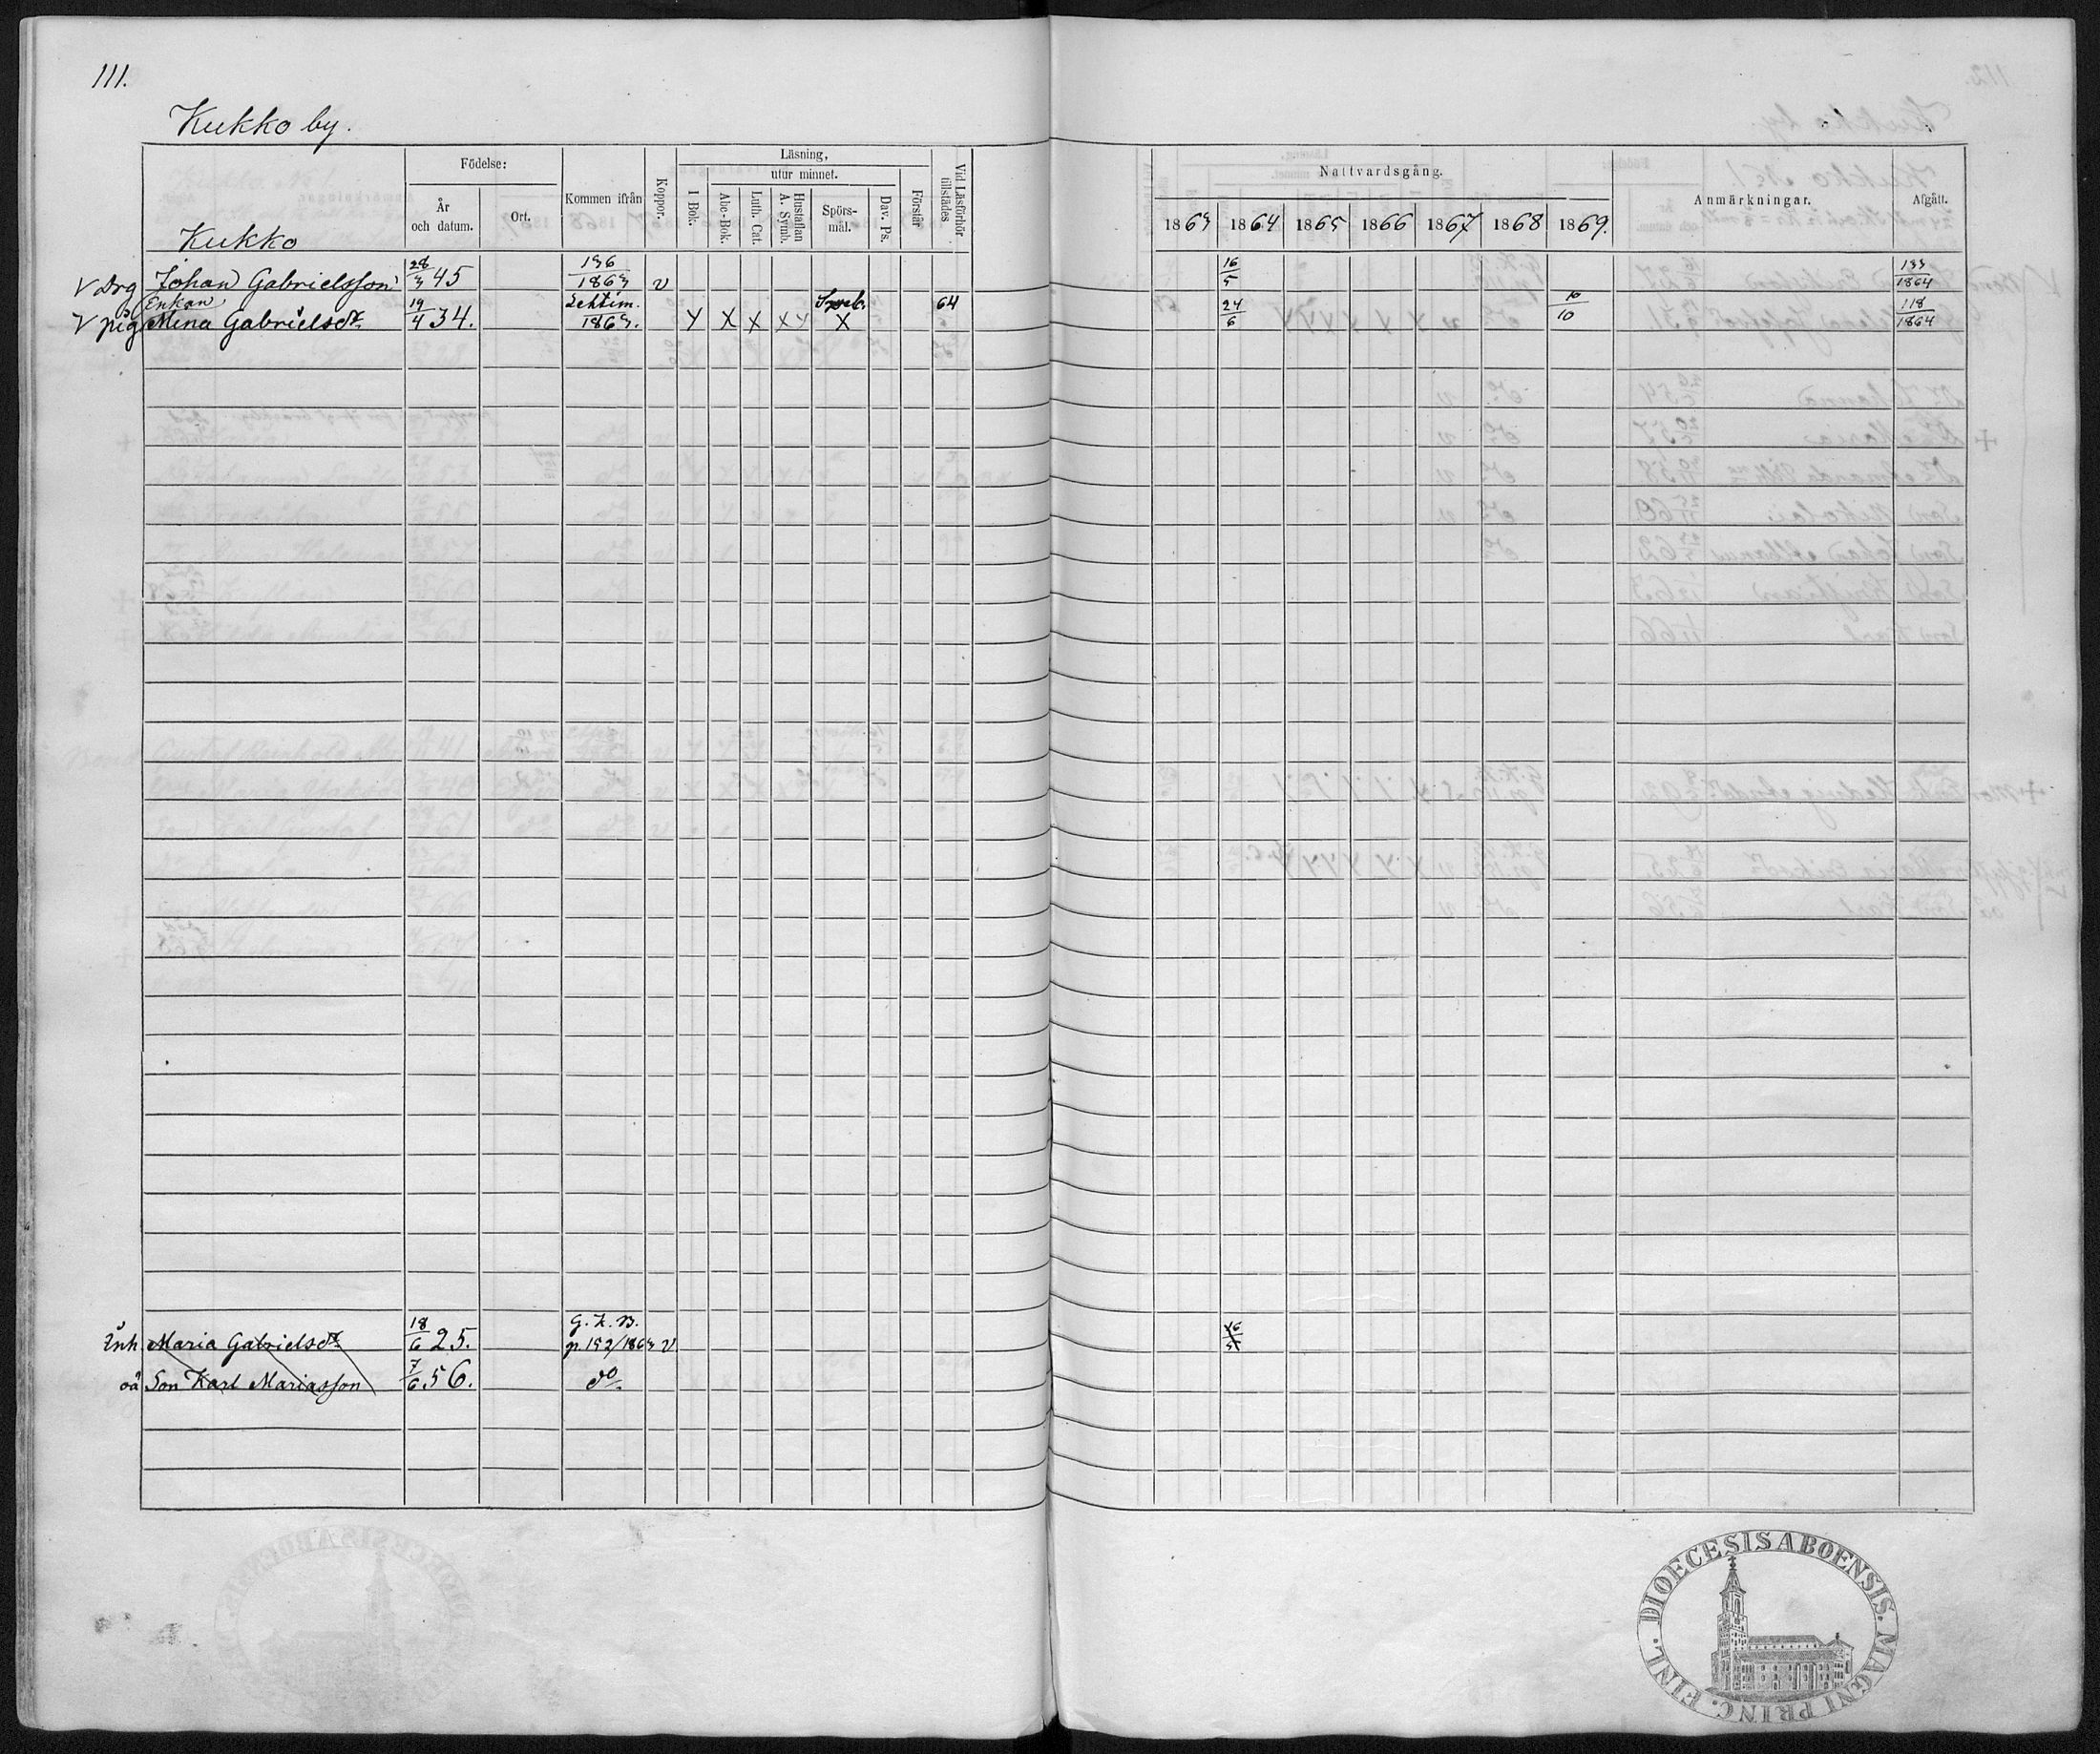 111.
Kukko by.
Födelse:
År och datum.
Ort.
Kommen ifrån
Koppor.
Läsning,
I Bok.
utur minnet.
Abc-Bok.
Luth. Cat.
Hustaflan A. Symb.
Spörsmål.
Dav. Ps.
Förstår
Vid Läsförhör tillstädes
Nattvardsgång.
1863 1864 1865 1866 1867 1868 1869.
Anmärkningar.
Afgått.
Kukko
V Drg Johan Gabrielsson 28/3 45 136/1863 v 16/5 133/1864
Enkan
V pig Mina Gabrielsdr 19/4 34. Lehtim. 1863. Y X X X Y X 64 24/6 10/10 118/1864
Inh Maria Gabrielsdr 18/6 25. G. K. B. p. 152/1863 v
oä Son Karl Mariasson 7/6 56. do
FINL. DIOECESIS ABOENSIS. MAGNI PRINC.